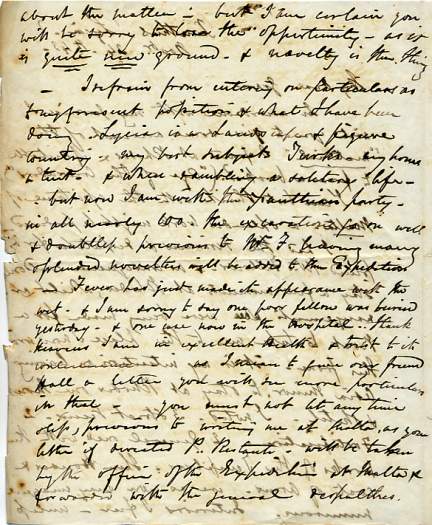 about the matter – but I am certain you
will be sorry to lose the opportunity – as it
is quite new ground – & novelty is the thing
– I refrain from entering on particulars as
to my present position & what I have been
doing. Lycia is a & figure
country – my best subjects Turks any homes
& tents & when rambling a solitary life –
– but now I am with the party –
in all nearly 100. the excavations go on well
& doubtless previous to Mr F. leaving many
splendid novelties will be added to the Expedition
Fever has just made its appearance with the
wet – & I am sorry to say one poor fellow was buried
yesterday – & one now in the hospital. thank
heavens I am in excellent health & trust to it
continuing – as I mean to give our friend
Hall a letter, you will see more particulars
in that – you must not let any time
elapse, previous to writing me at Malta, as your
letter if directed P. Restante – will be taken
by the officer of the Expedition at Malta &
forwarded with the general despatches.